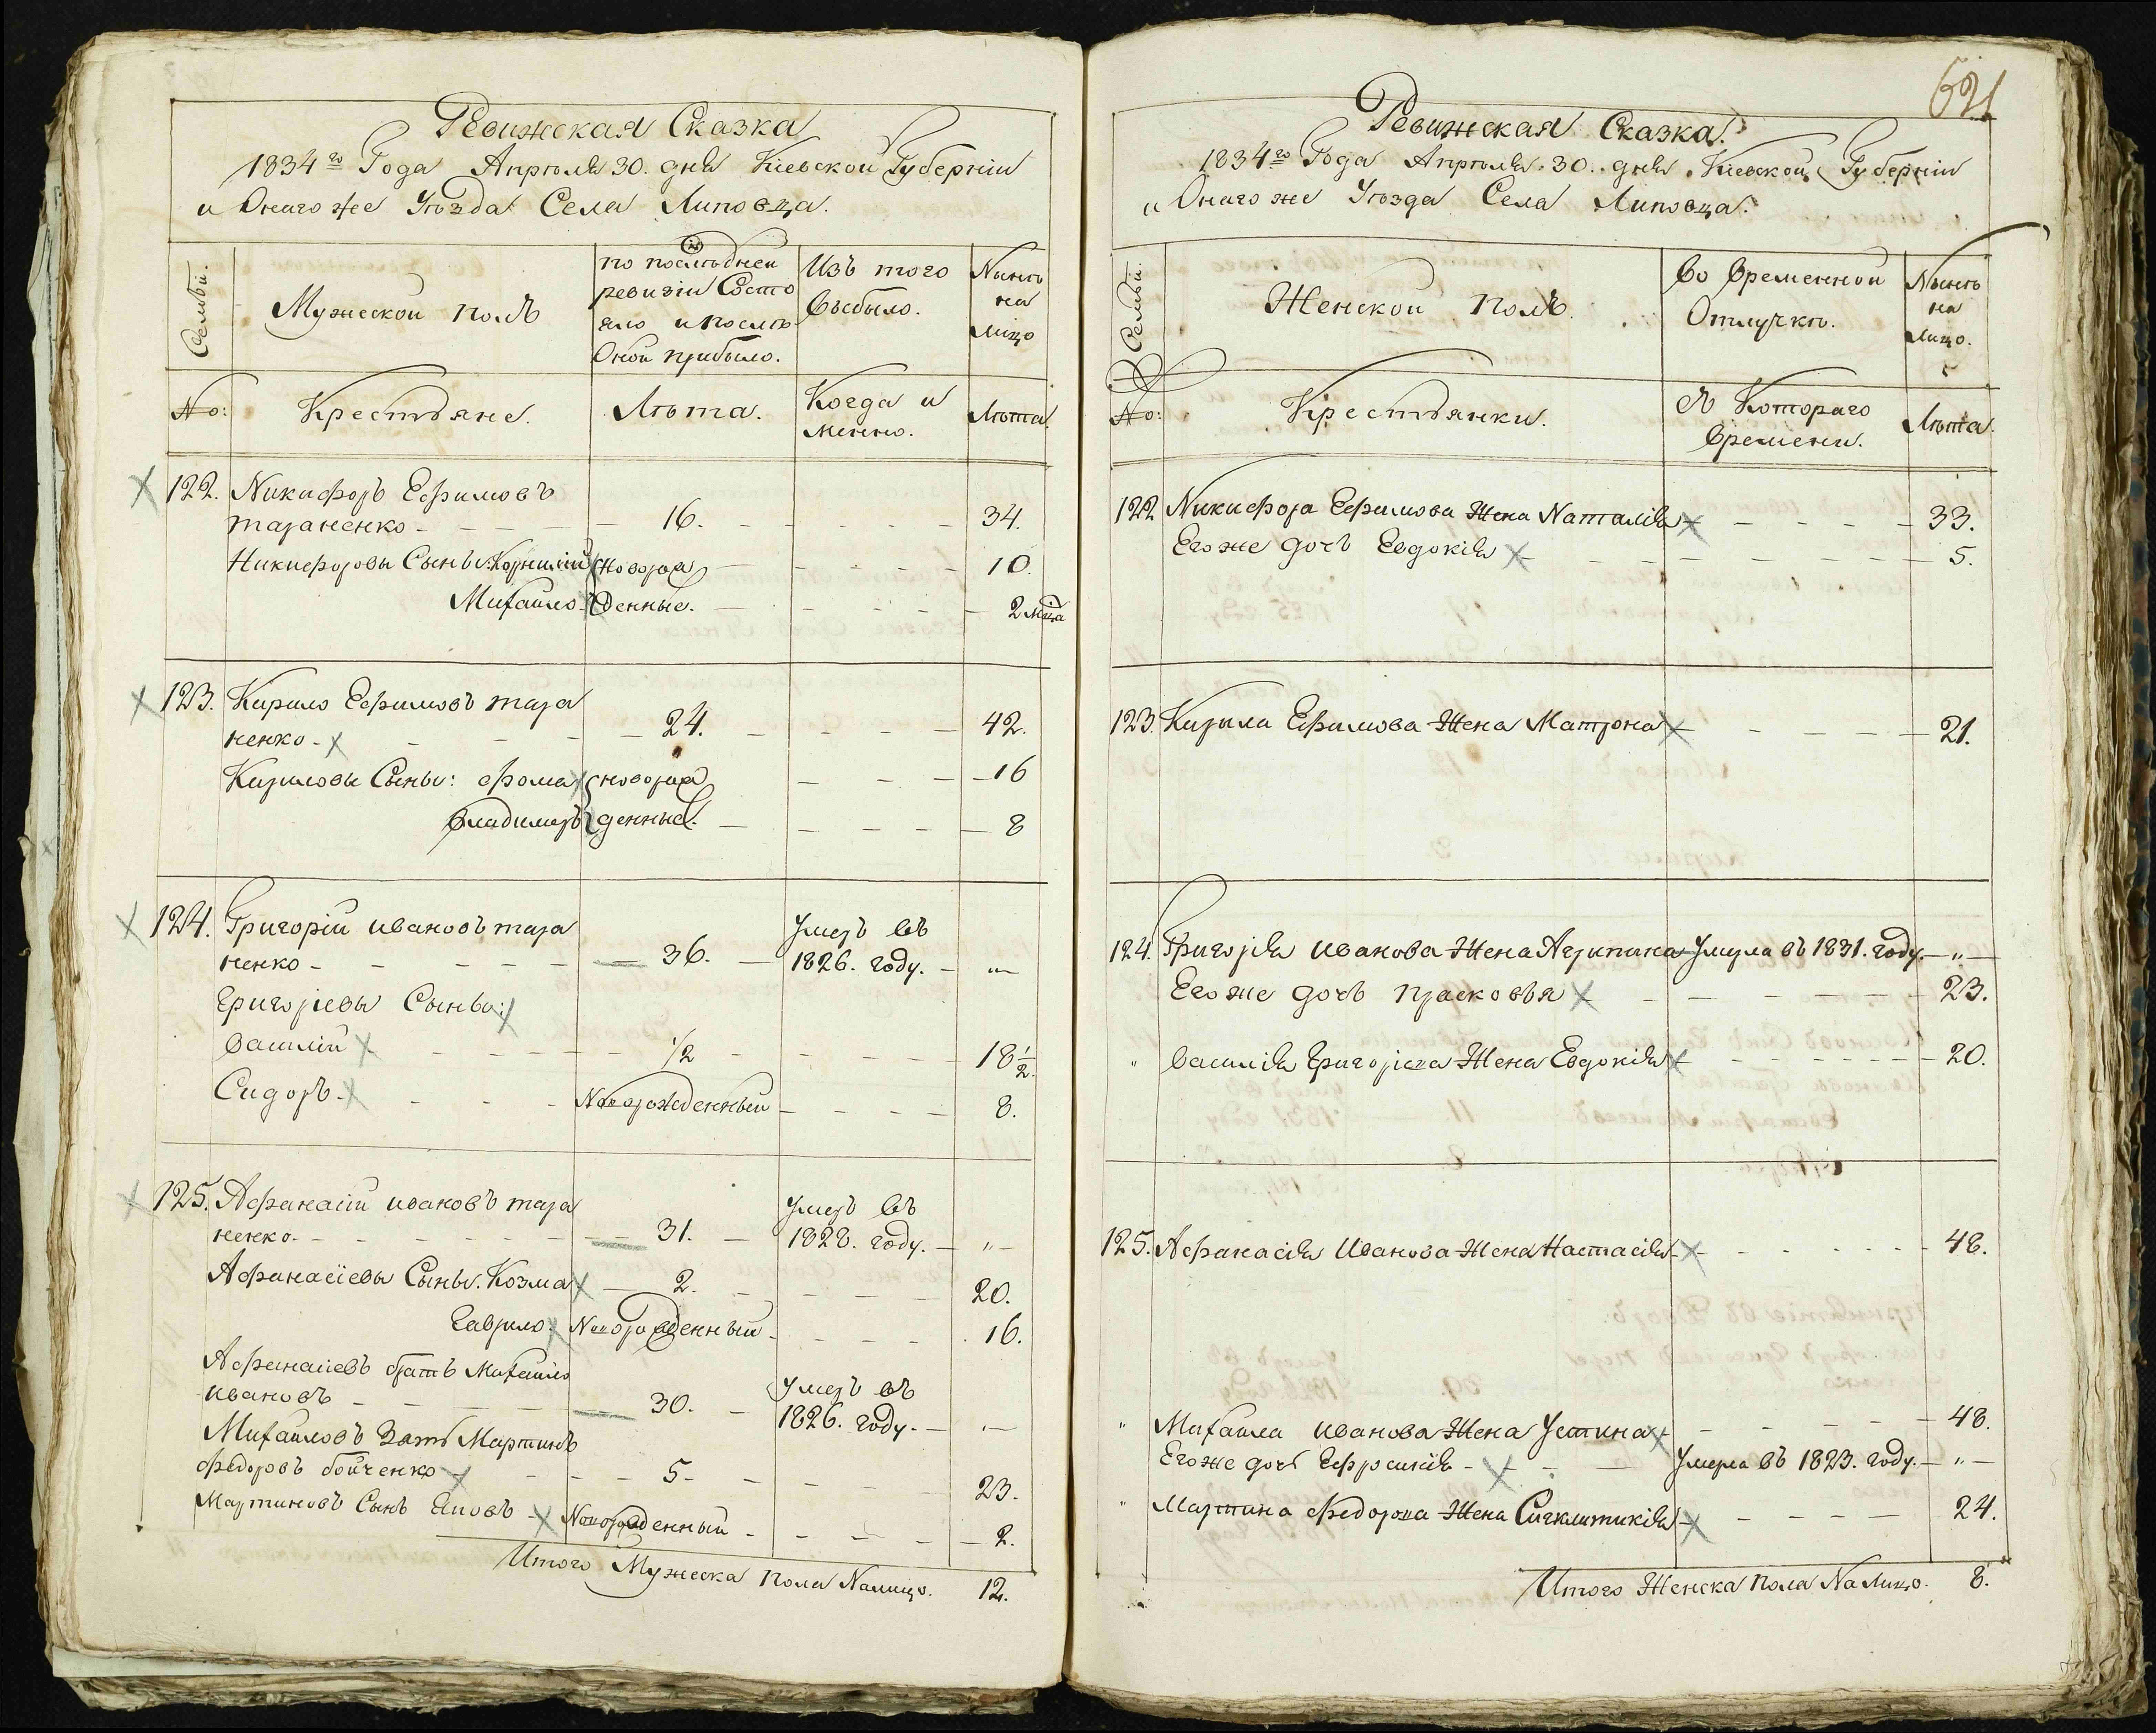 Ревижская Сказка
1834го Года Апрѣля 30. дня Кіевской Губерніи
и Онаго же Уѣзда Села Липовца.
Семьи.
Мужескои полъ
по послѣднеи
ревизіи Состо
яло и послѣ
Онои прибыло.
Изъ того
выбыло.
Нынѣ
на
лицо
No:
Крестьяне.
Лѣта.
Когда и
менно.
Лѣта
122. Никифоръ Ефимовъ
тараненко - 16. - 34.
Никифоровы Сыны: Корнилій новорож - 10.
Михайло денные. - 2 мца
123. Кирило Ефимовъ тара
ненко - 24. - 42.
Кириловы Сыны: фома новорож - 16
владимеръ денные. - 8
124. Григорій ивановъ тара
Умеръ въ
ненко - 36. - 1826. году. - "
Григоріевы Сыны:
василій - 1/2 - 18 1/2.
Сидоръ - Новорожденный - 8.
125. Афанасій ивановъ тара
Умеръ въ
ненко. - 31. - 1828. году. - "
Афанасіевы Сыны. Козма - 2. - 20.
Гаврило. Новорожденный - 16.
Афанасіевъ братъ Михайло
Умеръ въ
ивановъ - 30. - 1826. году. - "
Михайловъ Зять Мартинъ
федоровъ бойченко - 5 - 23.
Мартиновъ Сынъ Яковъ - Новорожденный - 2.
Итого Мужеска пола Налицо. 12.
621
Ревижская Сказка.
1834го Года Апрѣля 30. дня Кіевской Губерніи
и Онаго же Уѣзда Села Липовца.
Семьи.
Женской полъ.
во временной
Отлучкѣ.
Нынѣ
на
лицо.
No:
Крестьянки.
Съ Котораго
времени.
Лѣта.
122 Никифора Ефимова Жена Наталія - 33.
Его же дочь Евдокія - 5.
123. Кирила Ефимова Жена Матрона - 21.
124. Григорія иванова Жена Агрипина Умерла въ 1831. году. - "
Его же дочь прасковья - 23.
" василія Григоріева Жена Евдокія - 20.
125. Афанасія Иванова Жена Настасія - 48.
" Михайла иванова Жена Устина - 48.
Его же дочь Ефросинія - Умерла въ 1823. году. - "
" Мартина федорова Жена Сигклитикія - 24.
Итого Женска пола На лицо. 8.